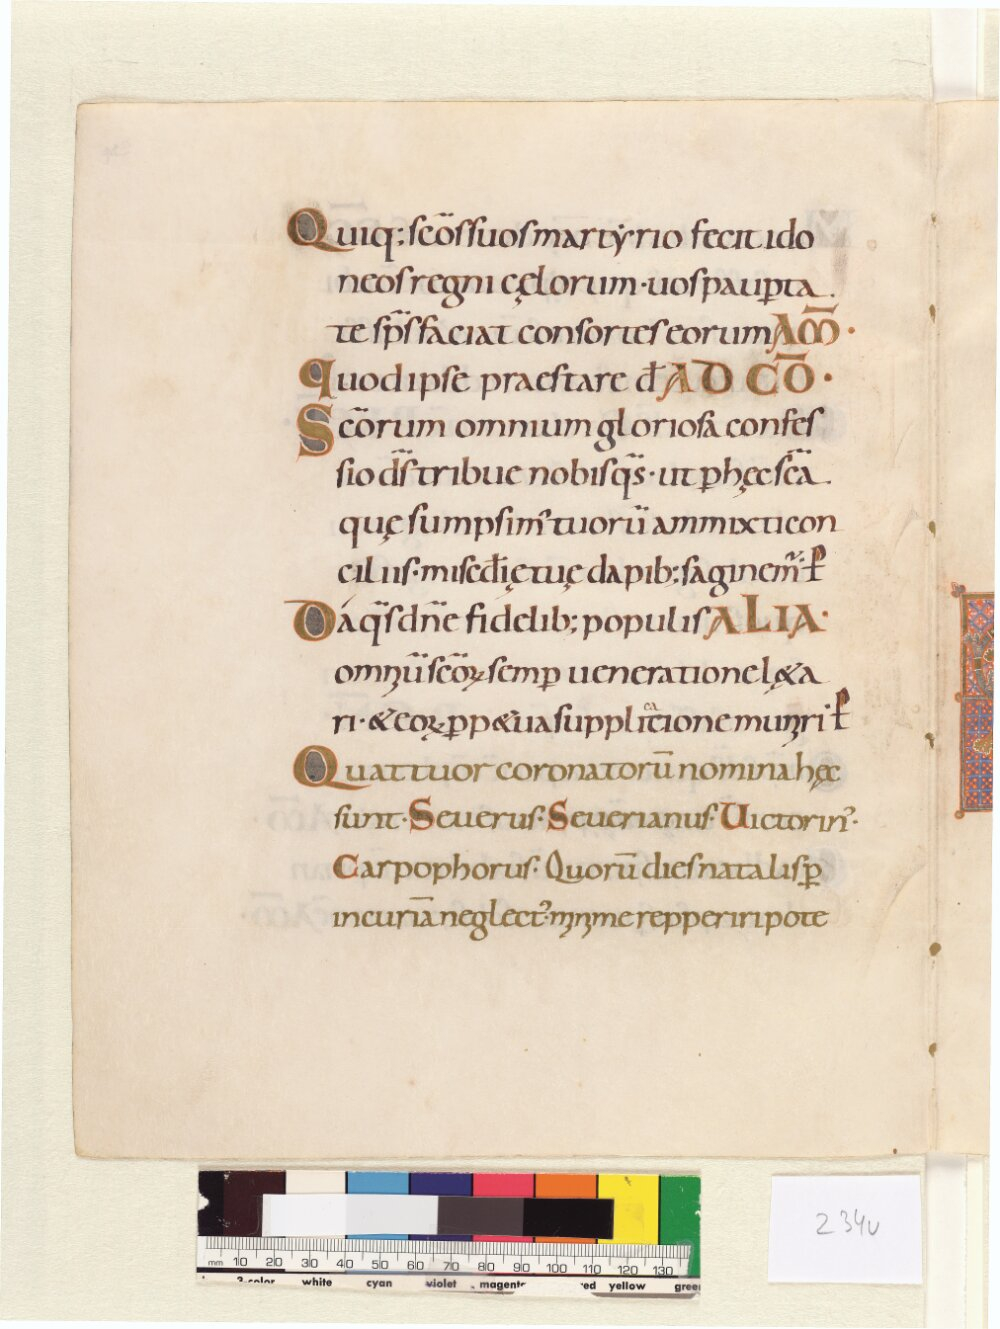 Quiq; sc̄os suos martẏrio fecit ido
neos regni cęlorum · uos paup̲ta
te sp̄s faciat consortes eorum AM̄ ·
quod ipse praestare đ AD CŌ ·
Sc̄orum omnium gloriosa confes
sio dn̄s tribue nobis qs̄ · ut p̲ hęc sc̄a
quę sumpsim᾽ tuorū ammixti con
ciliis · miscđię tuę dapib; saginem᾽ · P̄
Da qs̄ dn̄e fidelib; populis ALIA ·
omniū sc̄oꝝ semp̲ ueneratione l&a
ri · & eoꝝ p̲p&ua supplicatione muniri · P̄
Quattuor coronatorū nomina hęc
sunt · Seuerus · Seuerianus · Uictorin᾽ ·
Carpophorus · Quorū dies natalis p̲
incuriā neglect᾽ minime repperiri pote
234v
mm 10 20 30 40 50 60 70 80 90 100 110 120 130
3-color white cyan violet magenta red yellow green